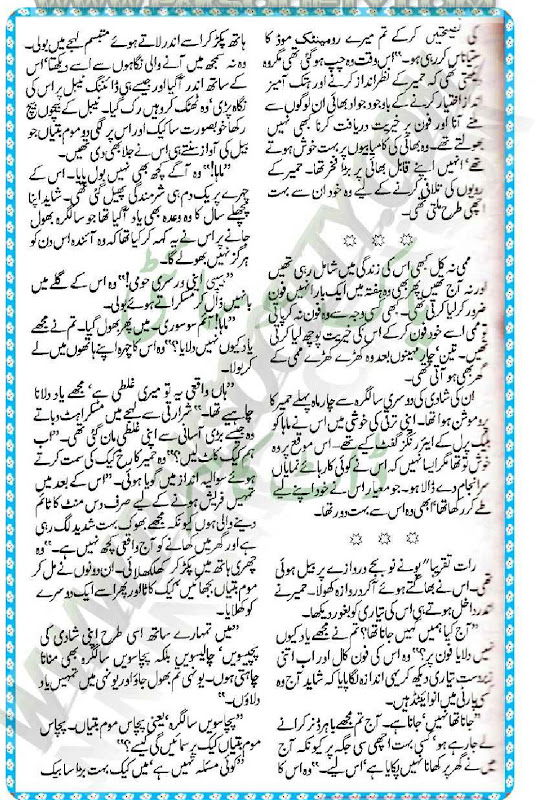 کی نصیحتیں کرکے تم میرے رومینٹک موڈ کا
ستیاناس کررہی ہو۔" اس وقت وہ چپ ہوگئی تھی مگر وہ
دیکھتی تھی کہ حمیر کے نظرانداز کرنے اور ہتک آمیز
انداز اختیار کرنے کے باوجود جواد بھائی ان لوگوں سے
ملنے آنا اور فون پر خیریت دریافت کرنا بھی نہیں
بھولتے تھے۔ وہ بھائی کی کامیابیوں پر بہت خوش ہوتے
تھے' انہیں اپنے قابل بھائی پر بڑا فخر تھا۔ حمیر کے
رویوں کی تلافی کرنے کے لیے وہ خود ان سے بہت
اچھی طرح ملتی تھی۔
ممی نہ کل بھی اس کی زندگی میں شامل رہی تھیں
اور نہ آج تھیں پھر بھی وہ ہفتہ میں ایک بار انہیں فون
ضرور کرلیا کرتی تھی۔ کبھی کسی وجہ سے وہ فون نہ کرپاتی
تو ممی اسے خود فون کرکے اس کی خیریت پوچھ لیا کرتی
تھیں۔ تین' چار مہینوں بعد وہ کھڑے کھڑے ممی کے
گھر بھی ہو آتی تھی۔
ان کی شادی کی دوسری سالگرہ سے چار ماہ پہلے حمیر کا
پروموشن ہوا تھا۔ اپنی ترقی کی خوشی میں اس نے ماہا کو
بلیک پرل کے ایئررنگز گفٹ کیے تھے۔ اس موقع پر وہ
خوش تو تھا مگر ایسا نہیں کہ اس نے کوئی کارہائے نمایاں
سرانجام دے ڈالا ہو۔ جو معیار اس نے خود اپنے لیے
طے کر رکھا تھا' ابھی وہ اس سے بہت دور تھا۔
رات تقریباً پونے نو بجے دروازے پر بیل ہوئی
تھی۔ اس نے بھاگتے ہوئے آکر دروازہ کھولا۔ حمیر نے
اندر داخل ہوتے ہی اس کی تیاری کو بغور دیکھا۔
"آج کیا ہمیں کہیں جانا تھا؟ تم نے مجھے یاد کیوں
نہیں دلایا فون پر؟" وہ اس کی فون کال اور اب اتنی
زبردست تیاری دیکھ کر یہی اندازہ لگا پایا کہ شاید آج وہ
کسی پارٹی میں انوائیٹڈ ہیں۔
"جانا تھا نہیں' جانا ہے۔ آج تم مجھے باہر ڈنر کرانے
لے جارہے ہو' کسی بہت اچھی سی جگہ پر کیونکہ آج
میں نے گھر پر کھانا نہیں پکایا ہے' اس لیے۔" وہ اس کا
ہاتھ پکڑ کر اسے اندر لاتے ہوئے متبسم لہجے میں بولی۔
وہ نہ سمجھ میں آنے والی نگاہوں سے اسے دیکھتا' اس
کے ساتھ اندر آگیا اور جیسے ہی ڈائننگ ٹیبل پر اس کی
نگاہ پڑی' وہ ٹھٹک کر وہیں رک گیا۔ ٹیبل کے بیچوں بیچ
رکھا خوبصورت سا کیک اور اس پر لگی دو موم بتیاں جو
بیل کی آواز سنتے ہی اس نے جلا بھی دی تھیں۔
"ماہا!" وہ آگے کچھ بھی نہیں بول پایا۔ اس کے
چہرے پر یک دم ہی شرمندگی پھیل گئی تھی۔ شاید اپنا
پچھلے سال کا وہ وعدہ بھی یاد آگیا تھا جو سالگرہ بھول
جانے پر اس نے یہ کہہ کر کیا تھا کہ وہ آئندہ اس دن کو
ہرگز نہیں بھولے گا۔
"ہیپی اینی ورسری حومی!" وہ اس کے گلے میں
بانہیں ڈال کر مسکراتے ہوئے بولی۔
"ماہا! آئم سوسوری۔ میں پھر بھول گیا۔ تم نے مجھے
یاد کیوں نہیں دلایا؟" وہ اس کا چہرہ اپنے ہاتھوں میں لے
کر بولا۔
"ہاں واقعی یہ تو میری غلطی ہے' مجھے یاد دلانا
چاہیے تھا۔" شرارتی سے لہجے میں مسکراہٹ دباتے
وہ جیسے بڑی آسانی سے اپنی غلطی مان گئی تھی۔ "اب
ہم کیک کاٹ لیں؟" وہ حمیر کا رخ کیک کی سمت کرتے
ہوئے سوالیہ انداز میں گویا ہوئی۔ "اس کے بعد میں
تمہیں فریش ہونے کے لیے صرف دس منٹ کا ٹائم
دینے والی ہوں کیونکہ مجھے بھوک بہت شدید لگ رہی
ہے اور گھر میں کھانے کو آج واقعی کچھ نہیں ہے۔" وہ
چھری ہاتھ میں پکڑ کر کھلکھلائی۔ ان دونوں نے مل کر
موم بتیاں بجھائیں' کیک کاٹا اور پھر اسے ایک دوسرے
کو کھلایا۔
"میں تمہارے ساتھ اسی طرح اپنی شادی کی
پچیسویں' چالیسویں بلکہ پچاسویں سالگرہ بھی منانا
چاہتی ہوں۔ یونہی تم بھول جاؤ اور یونہی میں تمہیں یاد
دلاؤں۔"
"پچاسویں سالگرہ' یعنی پچاس موم بتیاں۔ پچاس
موم بتیاں کیک پر سمائیں گی کیسے؟"
"کوئی مسئلہ نہیں ہے' میں کیک بہت بڑا سا بیک